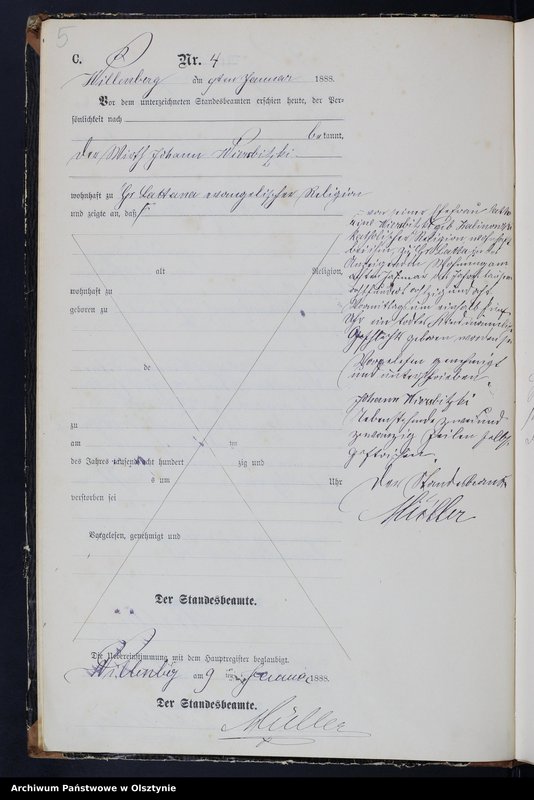 5
C.
Nr. 4
Willenberg am 9ten Januar 1888.
Vor dem unterzeichneten Standesbeamten erschien heute, der Per-
sönlichkeit nach
bekannt,
der Wirth Johann Wierobitzki
wohnhaft zu Gr Lattana evangelischer Religion
und zeigte an, daß
von seiner Ehefrau
geb
katholischer Religion wohnhaft
bei ihm zu Gr Lattana in
Wohnung am
Januar des Jahres tausend
achthundert achtzig und acht
Vormittags um
Uhr ein todtes Kind männlichen
Geschlechts geboren worden sei
Vorgelesen genehmigt
und unterschrieben
Johann Wierobitzki
Nebenstehende zweiund-
zwanzig Zeilen
gestrichen.
Der Standesbeamte
Müller
alt Religion,
wohnhaft zu
geboren zu
de
zu
am im
des Jahres tausend acht hundert zig und
s um Uhr
verstorben sei
Vorgelesen, genehmigt und
Der Standesbeamte.
Die Uebereinstimmung mit dem Hauptregister beglaubigt.
Willenberg am 9 ten Januar 1888.
Der Standesbeamte.
Müller
Archiwum Państwowe w Olsztynie